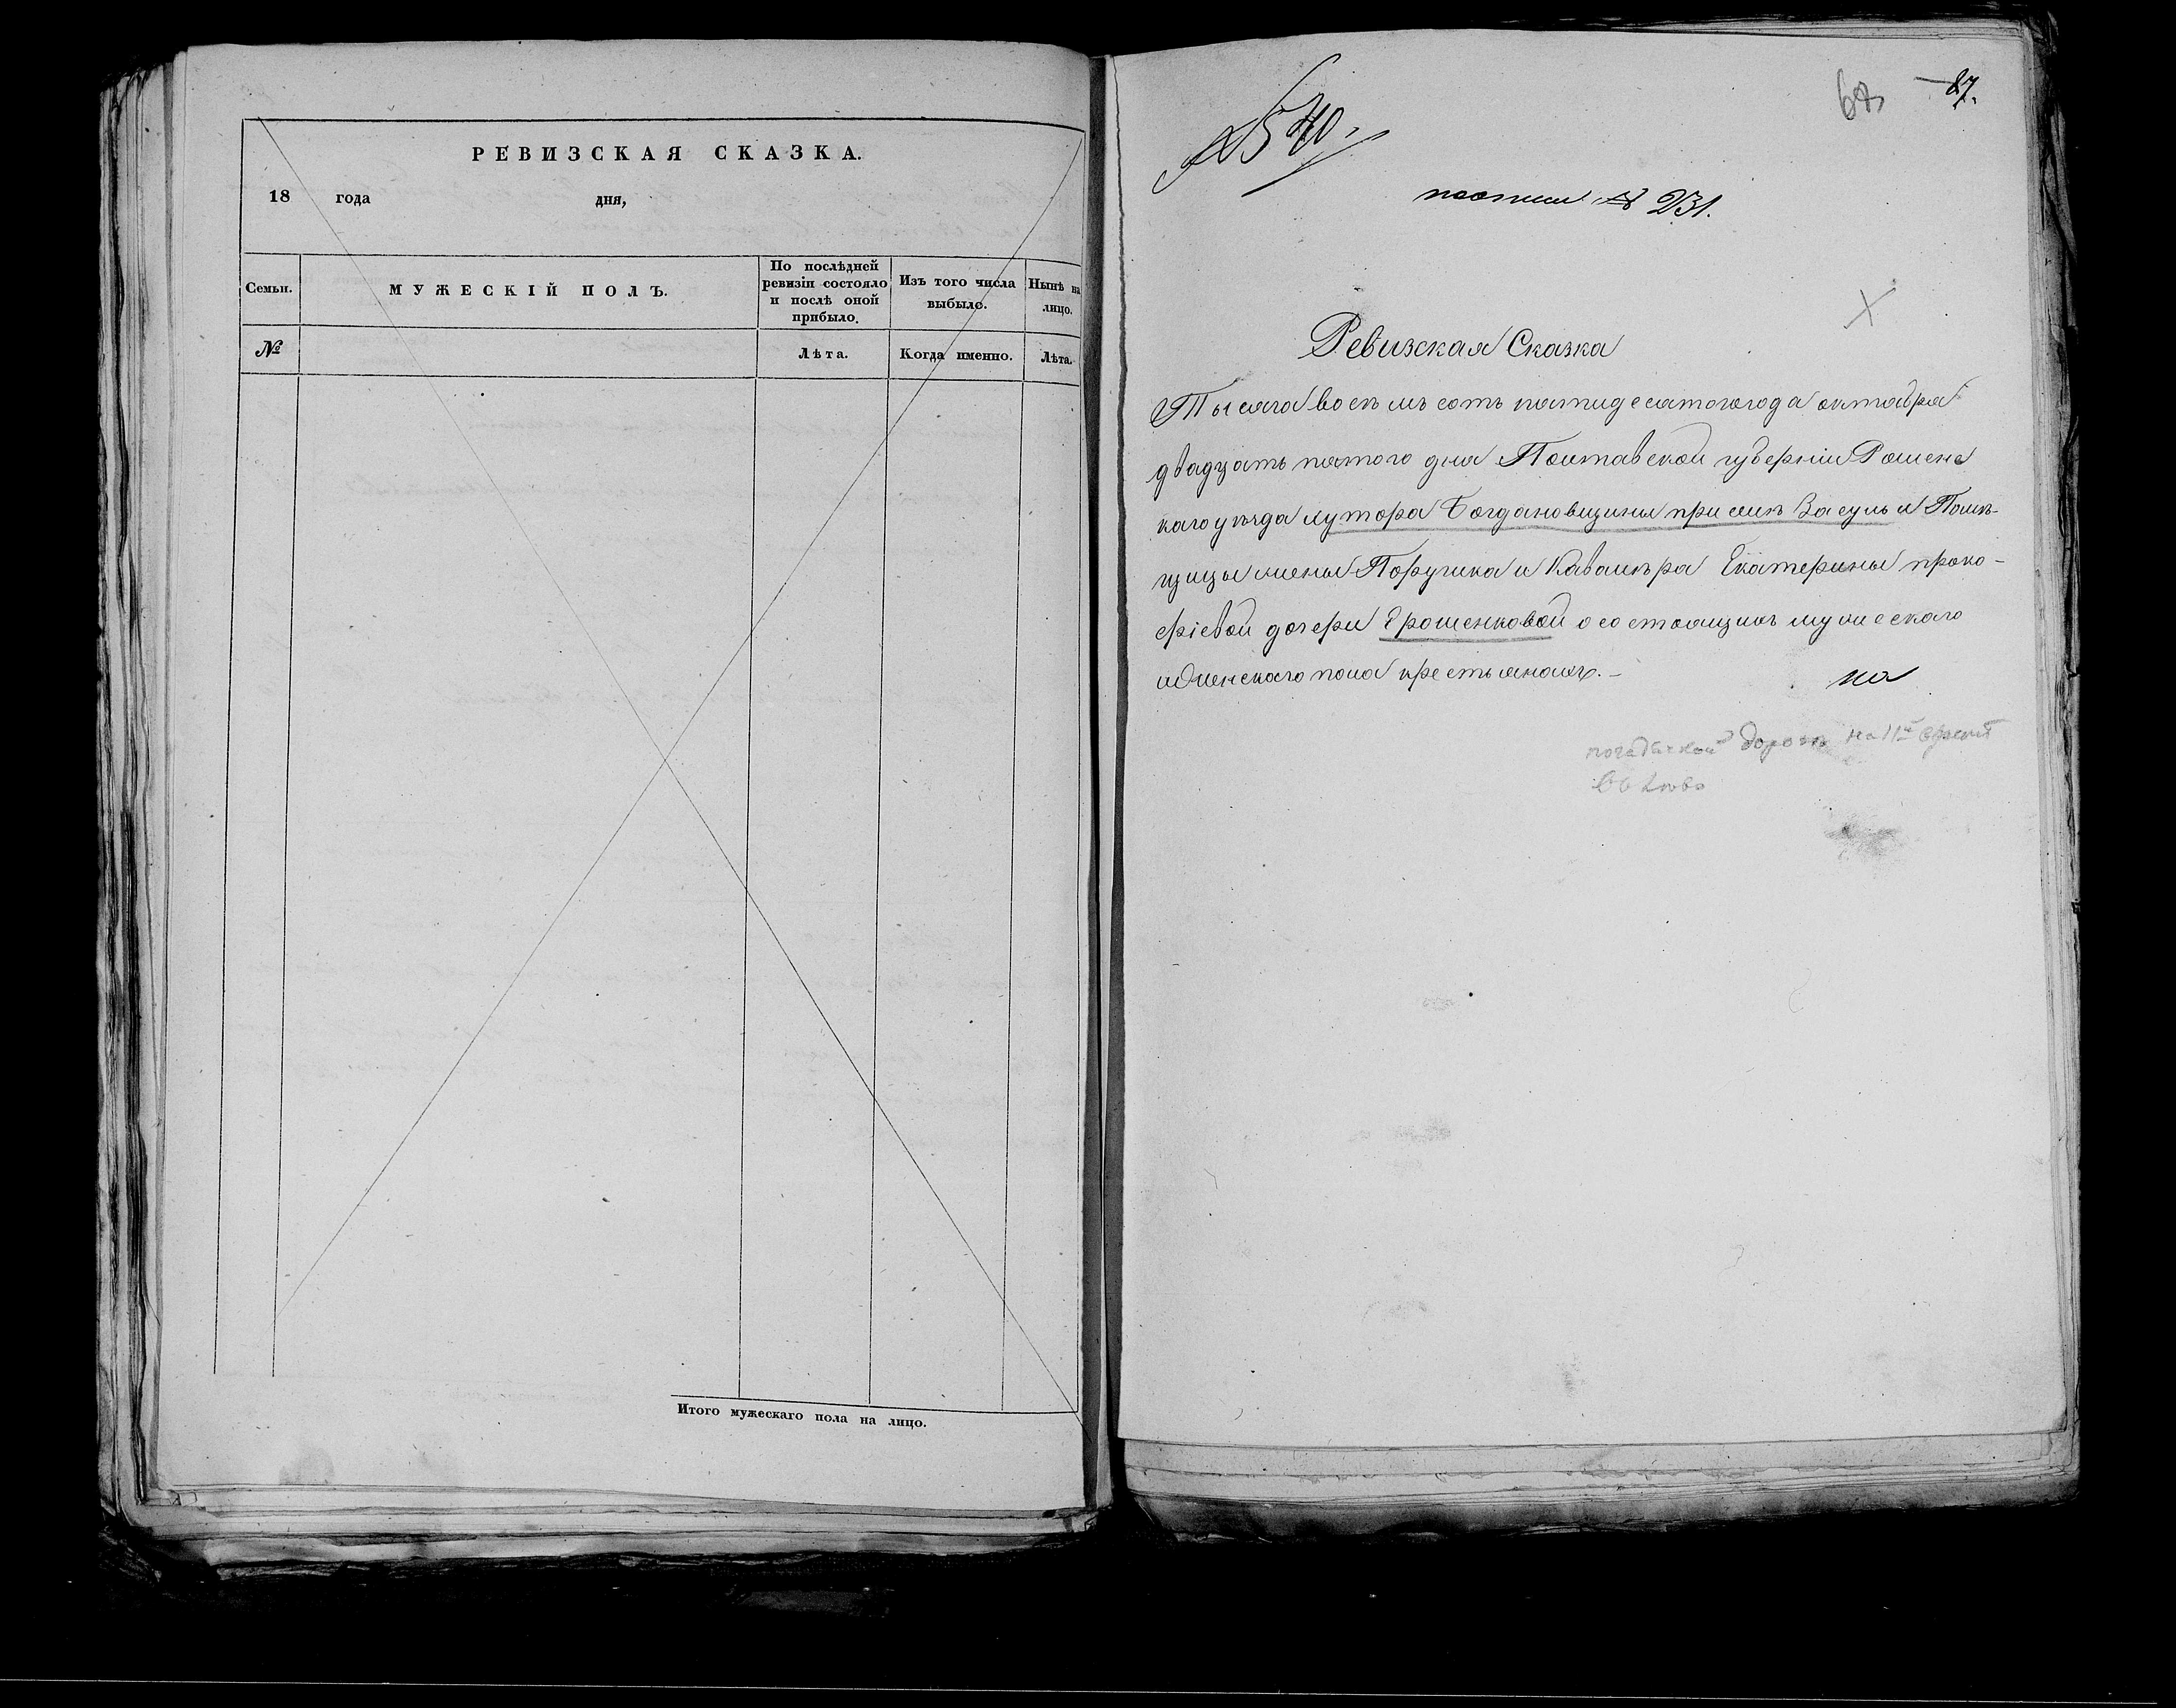 РЕВИЗСКАЯ СКАЗКА.
18 года дня,
Семьи.
МУЖЕСКІЙ ПОЛЪ.
По послѣдней ревизіи состояло и послѣ оной прибыло.
Изъ того числа выбыло.
Нынѣ на лицо.
№
Лѣта.
Когда именно.
Лѣта.
Итого мужескаго пола на лицо.
87.
№ 540.
№ 231.
Ревизская Сказка
Тысяча восемъ сотъ пятидесятого года октября
двадцать пятого дня Полтавской губерніи Роменс
каго уѣзда хутора Богдановщины при селѣ Засульи Помѣ-
щицы жены Поручика и Кавалѣра Екатерины проко-
фіевой дочери Ерошенковой о состоящихъ мужескаго
и женскаго пола крестьянахъ.-
на
дороги на 11й верстѣ